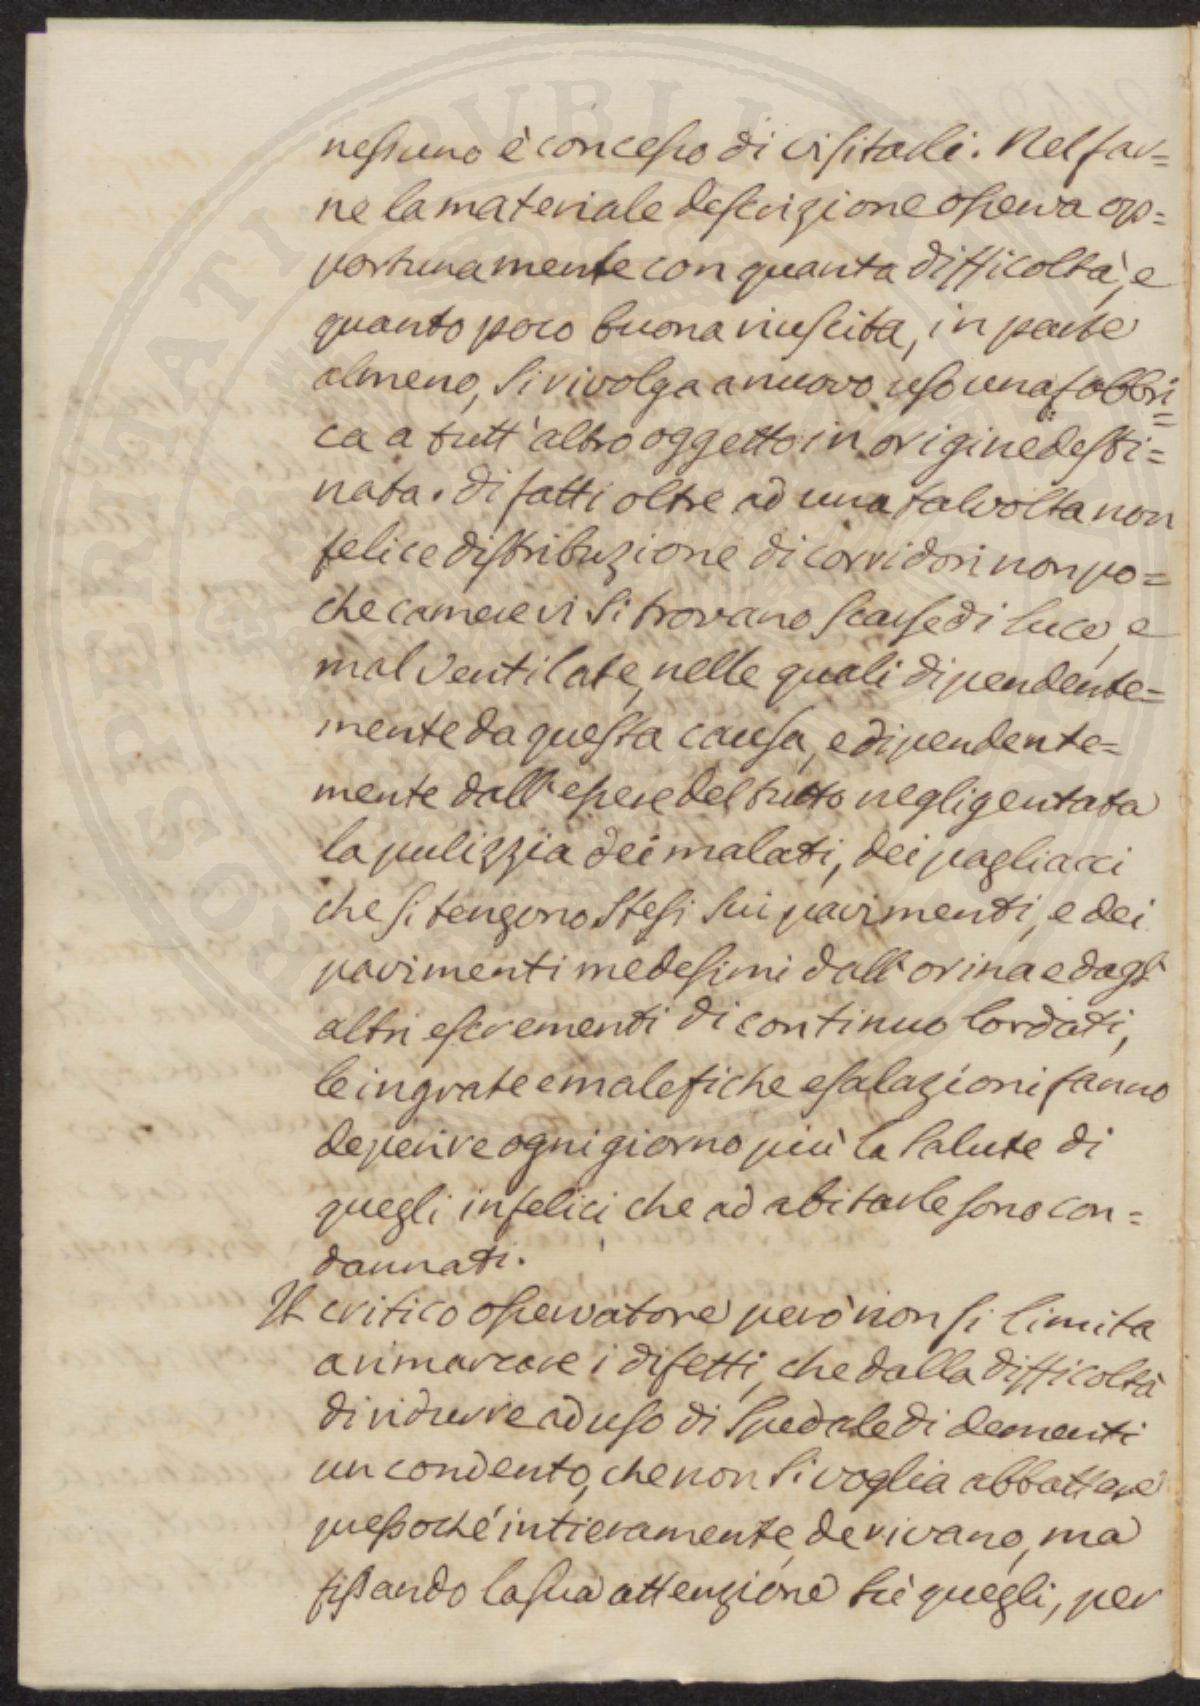 nessuno è concesso di visitarli. Nel far=
ne la materiale descrizione osserva op=
portunamente con quanta difficoltà, e
quanto poco buona riuscita, in parte
almeno, si rivolga a nuovo uso una fabbri=
ca a tutt'altro oggetto in origine desti=
nata. di fatti oltre ad una talvolta non
felice distribuzione di corridori non po=
che camere vi si trovano scarse di luce, e
mal ventilate, nelle quali dipendente=
mente da questa causa, e dipendente=
mente dall'essere del tutto negligentata
la pulizzia dei malati, dei pagliacci
che si tengono stesi sui pavimenti, e dei
pavimenti medesimi dall'orina e dagl'
altri escrementi di continuo lordati,
le ingrate e malefiche esalazioni fanno
deperire ogni giorno più la salute di
quegli infelici che ad abitarle sono con=
dannati.
Il critico osservatore però non si limita
a rimarcare i difetti, che dalla difficoltà
di ridurre ad uso di Spedale di dementi
un condento, che non si voglia abbattere
pressoché intieramente, derivano, ma
fissando la sua attenzione su quegli, per
PROSPERITATI PUBLICAE